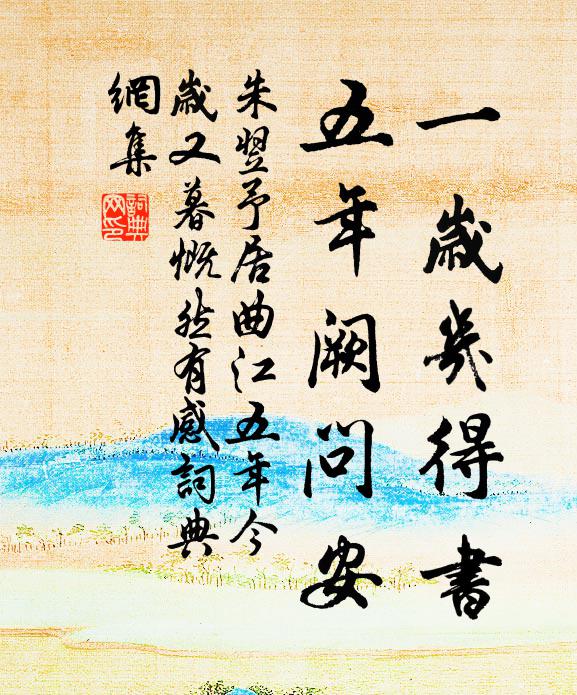 一歲幾得書
五年闕問安
朱翌予居曲江五年今
歲又暮慨然有感詞典
網集
詞典
网印